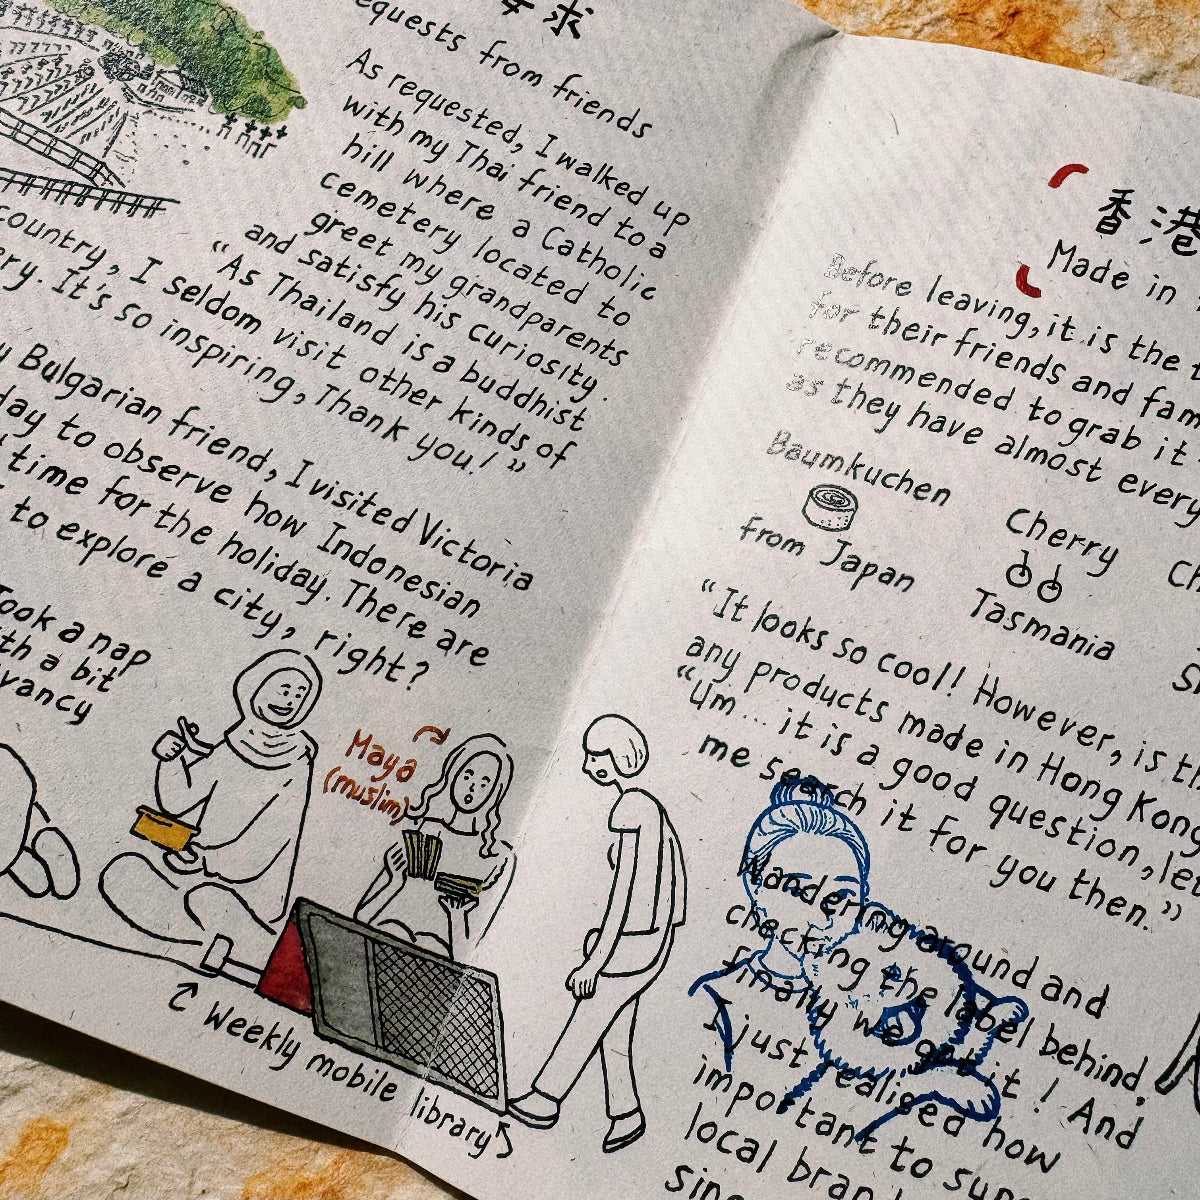 求
requests from friends
As requested, I walked up
with my Thai friend to a
hill where a Catholic
cemetery located to
greet my grandparents
and satisfy his curiosity.
“As Thailand is a buddhist
country, I seldom visit other kinds of
It's so inspiring, Thank you!”
Bulgarian friend, I visited Victoria
day to observe how Indonesian
time for the holiday. There are
to explore a city, right?
Took a nap
with a bit
Maya
(muslim)
weekly mobile library
香港
Made in
Before leaving, it is the
for their friends and
recommended to grab it
as they have almost every
Baumkuchen
from Japan
Cherry
Tasmania
“It looks so cool! However, is
any products made in Hong Kong
“Um... it is a good question, let
me search it for you then.”
Wandering around and
checking the label behind,
finally we got it! And
I just realised how
important to
local